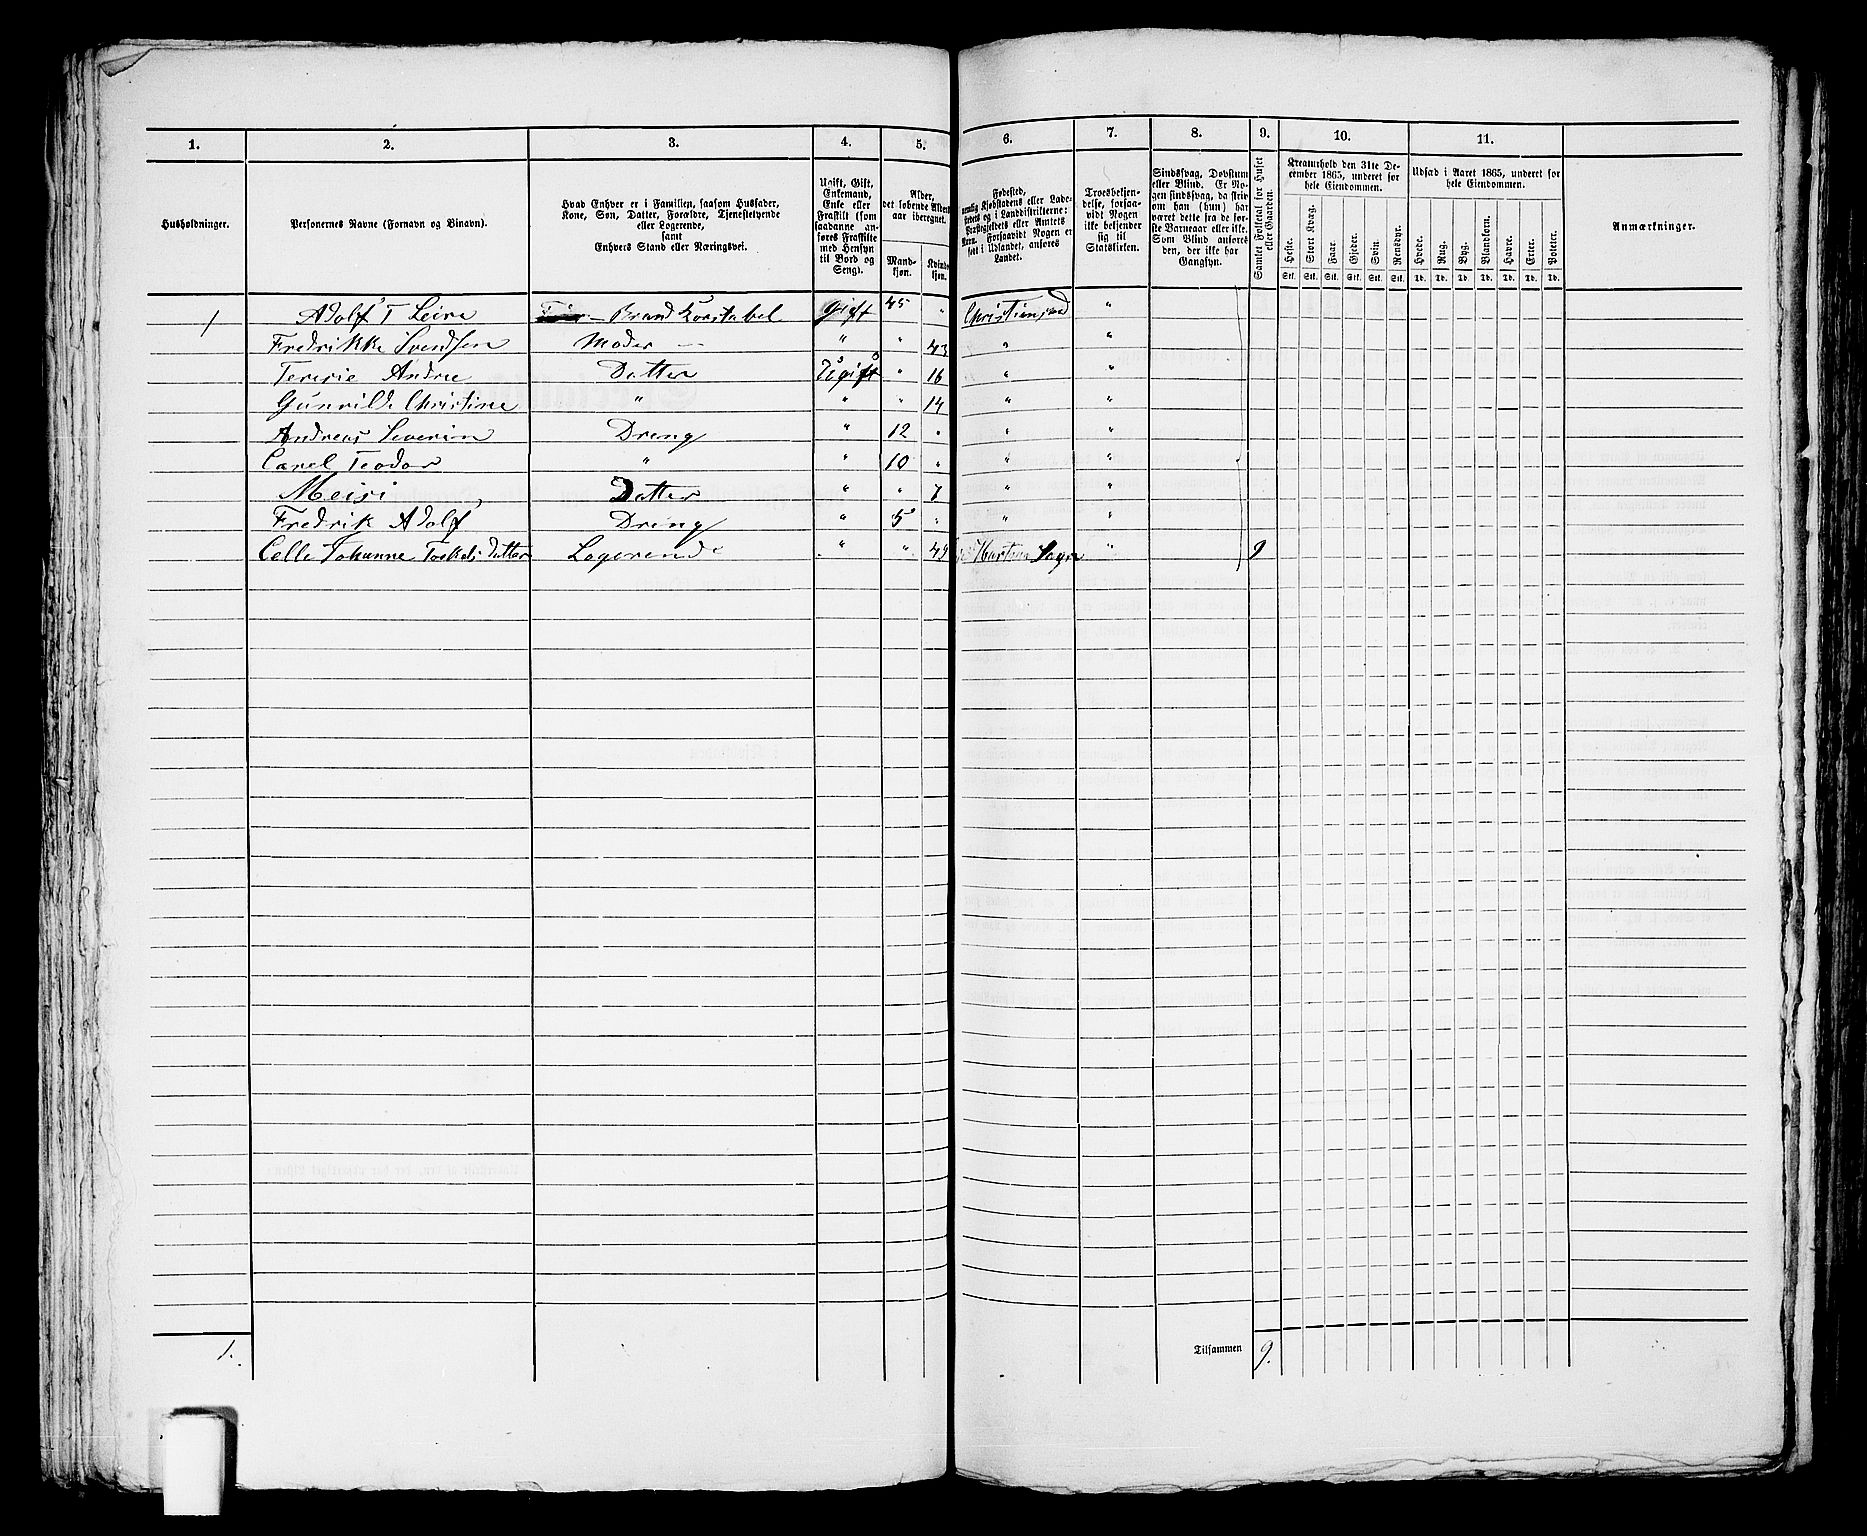 1. 2. 3. 4. 5. 6. 7. 8. 9. 10. 11.
Husholdninger.
Personernes Navne (Fornavn og Binavn).
Hvad Enhver er i Familien, saasom Husfader,
Kone, Søn, Datter, Forældre, Tjenestetyende
eller Logerende,
samt
Enhvers Stand eller Næringsvei.
Ugift, Gift,
Enkemand,
Enke eller
Fraskilt (som
saadanne an-
føres Fraskilte
med Hensyn
til Bord og
Seng).
Alder,
det løbende Alders-
aar iberegnet.
Mand-
kjøn.
Kvinde-
kjøn.
Fødested,
nemlig Kjøbstadens eller Lade-
stedets og i Landdistrikterne:
Præstegjeldets eller Amtets
Navn. Forsaavidt Nogen er
født i Udlandet, anføres
Landet.
Troesbekjen-
delse, forsaa-
vidt Nogen
ikke bekjender
sig til
Statskirken.
Sindssvag, Døvstum
eller Blind. Er No-
gen sindssvag, da skriv
om han (hun) har
været dette fra de før-
ste Barneaar eller ikke.
Som Blind anføres
den, der ikke har
Gangsyn.
Samlet Folketal for Huset
eller Gaarden.
Kreaturhold den 31te De-
cember 1865, underet for
hele Eiendommen.
Heste. Stort Kvæg. Faar. Gjeder. Svin. Rensdyr.
Stk. Stk. Stk. Stk. Stk. Stk.
Udsæd i Aaret 1865, underet for
hele Eiendommen.
Hvede. Rug. Byg. Blandkorn. Havre. Erter. Poteter.
Td. Td. Td. Td. Td. Td. Td.
Anmærkninger.
1 Adolf T Leire Brand Konstabel Gift 45 " Christiansand "
Fredrikke Svendsen Moder — " " 43 " "
Andrea Datter Ugift " 16 " "
Gunvilde Christine " " " 14 " "
Andreas Severin Dreng " 12 " " "
Carel Teodor " " 10 " " "
Meisi Datter " " 7 " "
Fredrik Adolf Dreng " 5 " " "
Johanne datter Logerende " " 49 Sogn " 9
1. Tilsammen 9.